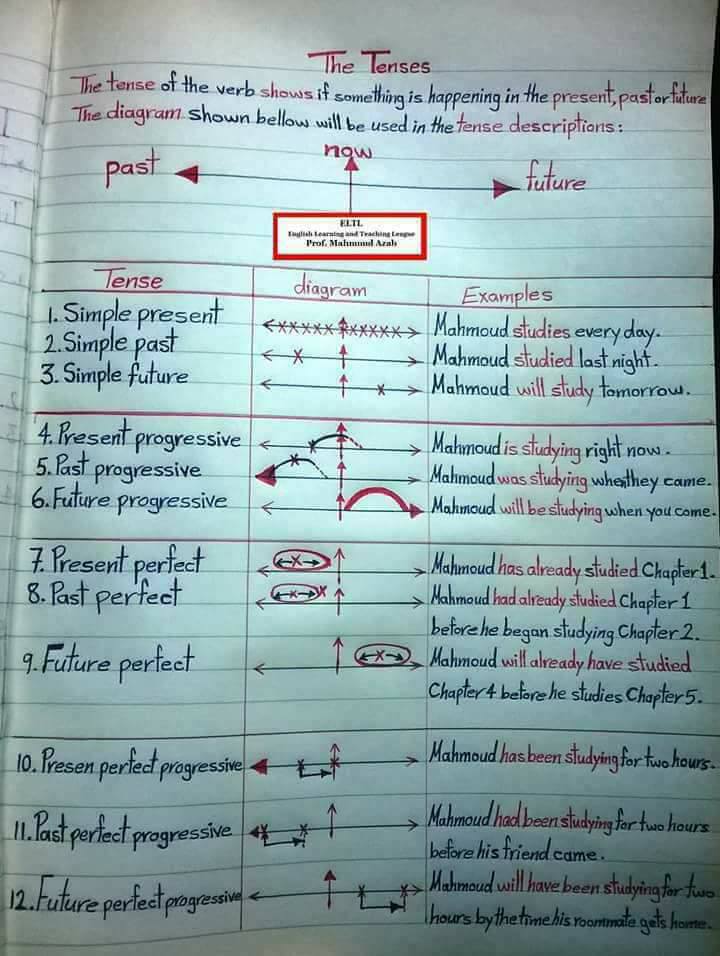 The Tenses
The tense of the verb shows if something is happening in the present, past or future
The diagram shown bellow will be used in the tense descriptions:
now
past
future
ELTL
English Learning and Teaching League
Prof. Mahmoud Azab
Tense diagram Examples
1. Simple present Mahmoud studies every day.
2. Simple past Mahmoud studied last night.
3. Simple future Mahmoud will study tomorrow.
4. Present progressive Mahmoud is studying right now.
5. Past progressive Mahmoud was studying when they came.
6. Future progressive Mahmoud will be studying when you come.
7. Present perfect Mahmoud has already studied Chapter 1.
8. Past perfect Mahmoud had already studied Chapter 1
before he began studying Chapter 2.
9. Future perfect Mahmoud will already have studied
Chapter 4 before he studies Chapter 5.
10. Presen perfect progressive Mahmoud has been studying for two hours.
11. Past perfect progressive Mahmoud had been studying for two hours
before his friend came.
12. Future perfect progressive Mahmoud will have been studying for two
hours by the time his roommate gets home.